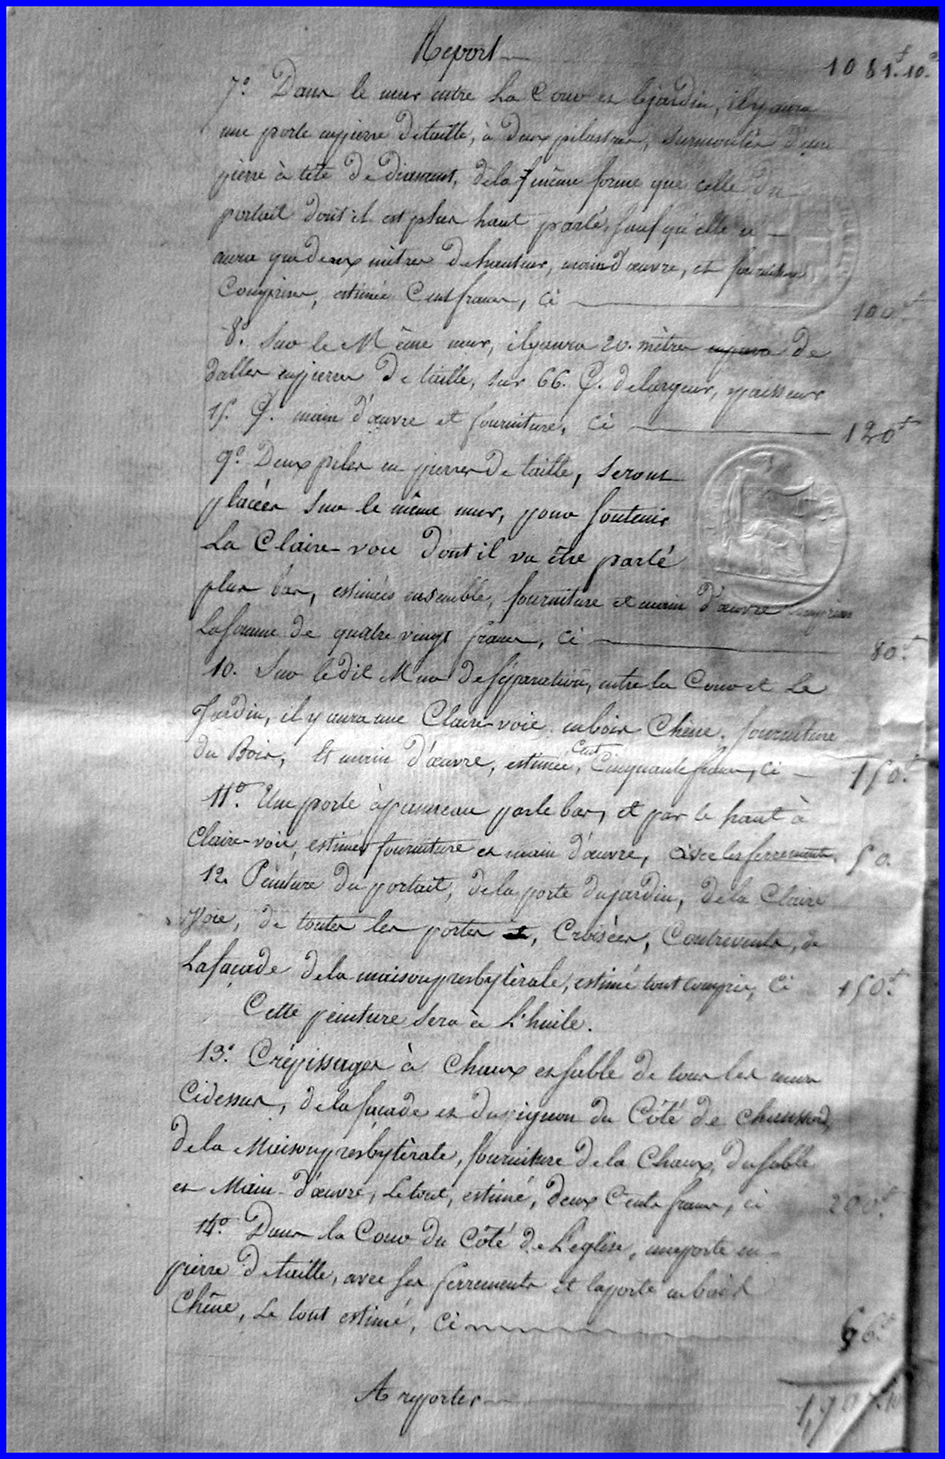 Report 1081.f 10.c
7.° Dans le mur entre la Cour et le jardin, il y aura
une porte en pierre de taille, à deux pilastres, surmontée d'une
pierre à tête de diamant, de la même forme que celle du
portail dont il est plus haut parlé, sauf qu'elle n'
aura que deux mètres de hauteur, main d'œuvre, et fourniture
Comprise, estimée Cent francs, ci 100.f
8.° Sur le Même mur, il y aura 20. mètres de
dalles en pierre de taille, sur 66. C. de largeur, épaisseur
15. C. main d'œuvre et fourniture, ci 120f
9.° Deux piles en pierre de taille, seront
placées sur le même mur, pour soutenir
La Claire-voie dont il va être parlé
plus bas, estimées ensemble, fourniture et main d'œuvre comprises
La somme de quatre vingt francs, ci 80.f
10. Sur le dit Mur de séparation, entre la Cour et Le
Jardin, il y aura une Claire-voie en bois Chêne, fourniture
du Bois, et main d'œuvre, estimée, Cent Cinquante francs, ci 150.f
11.° Une porte à panneau par le bas, et par le haut à
Claire-voie, estimée fourniture et main d'œuvre, avec les ferrements, 50.
12. Peinture du portail, de la porte du jardin, de la Claire
Voie, de toutes les portes, Croisées, Contrevents, de
La façade de la maison presbytérale, estimé tout compris, Ci 150.f
Cette peinture sera à L'huile.
13.° Crépissages à Chaux et sable de tous les murs
Cidessus, de la façade et du pignon du Côté de
de la Maison presbytérale, fourniture de la Chaux, du sable
et Main-d'œuvre, Le tout, estimé, deux Cents francs, ci 200.f
14.° Dans la Cour du Côté de L'église, une porte en
pierre de taille, avec ses ferrements et la porte en bois
Chêne, Le tout estimé, Ci
A reporter